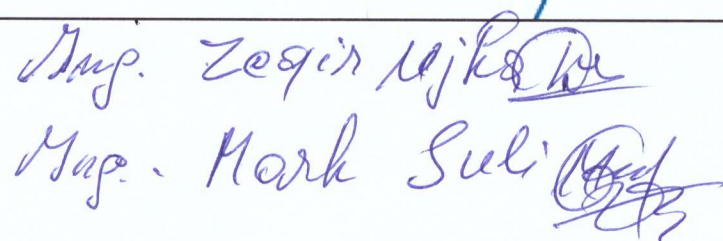 Ing. Zeqir Ujka
Ing. Mark Suli